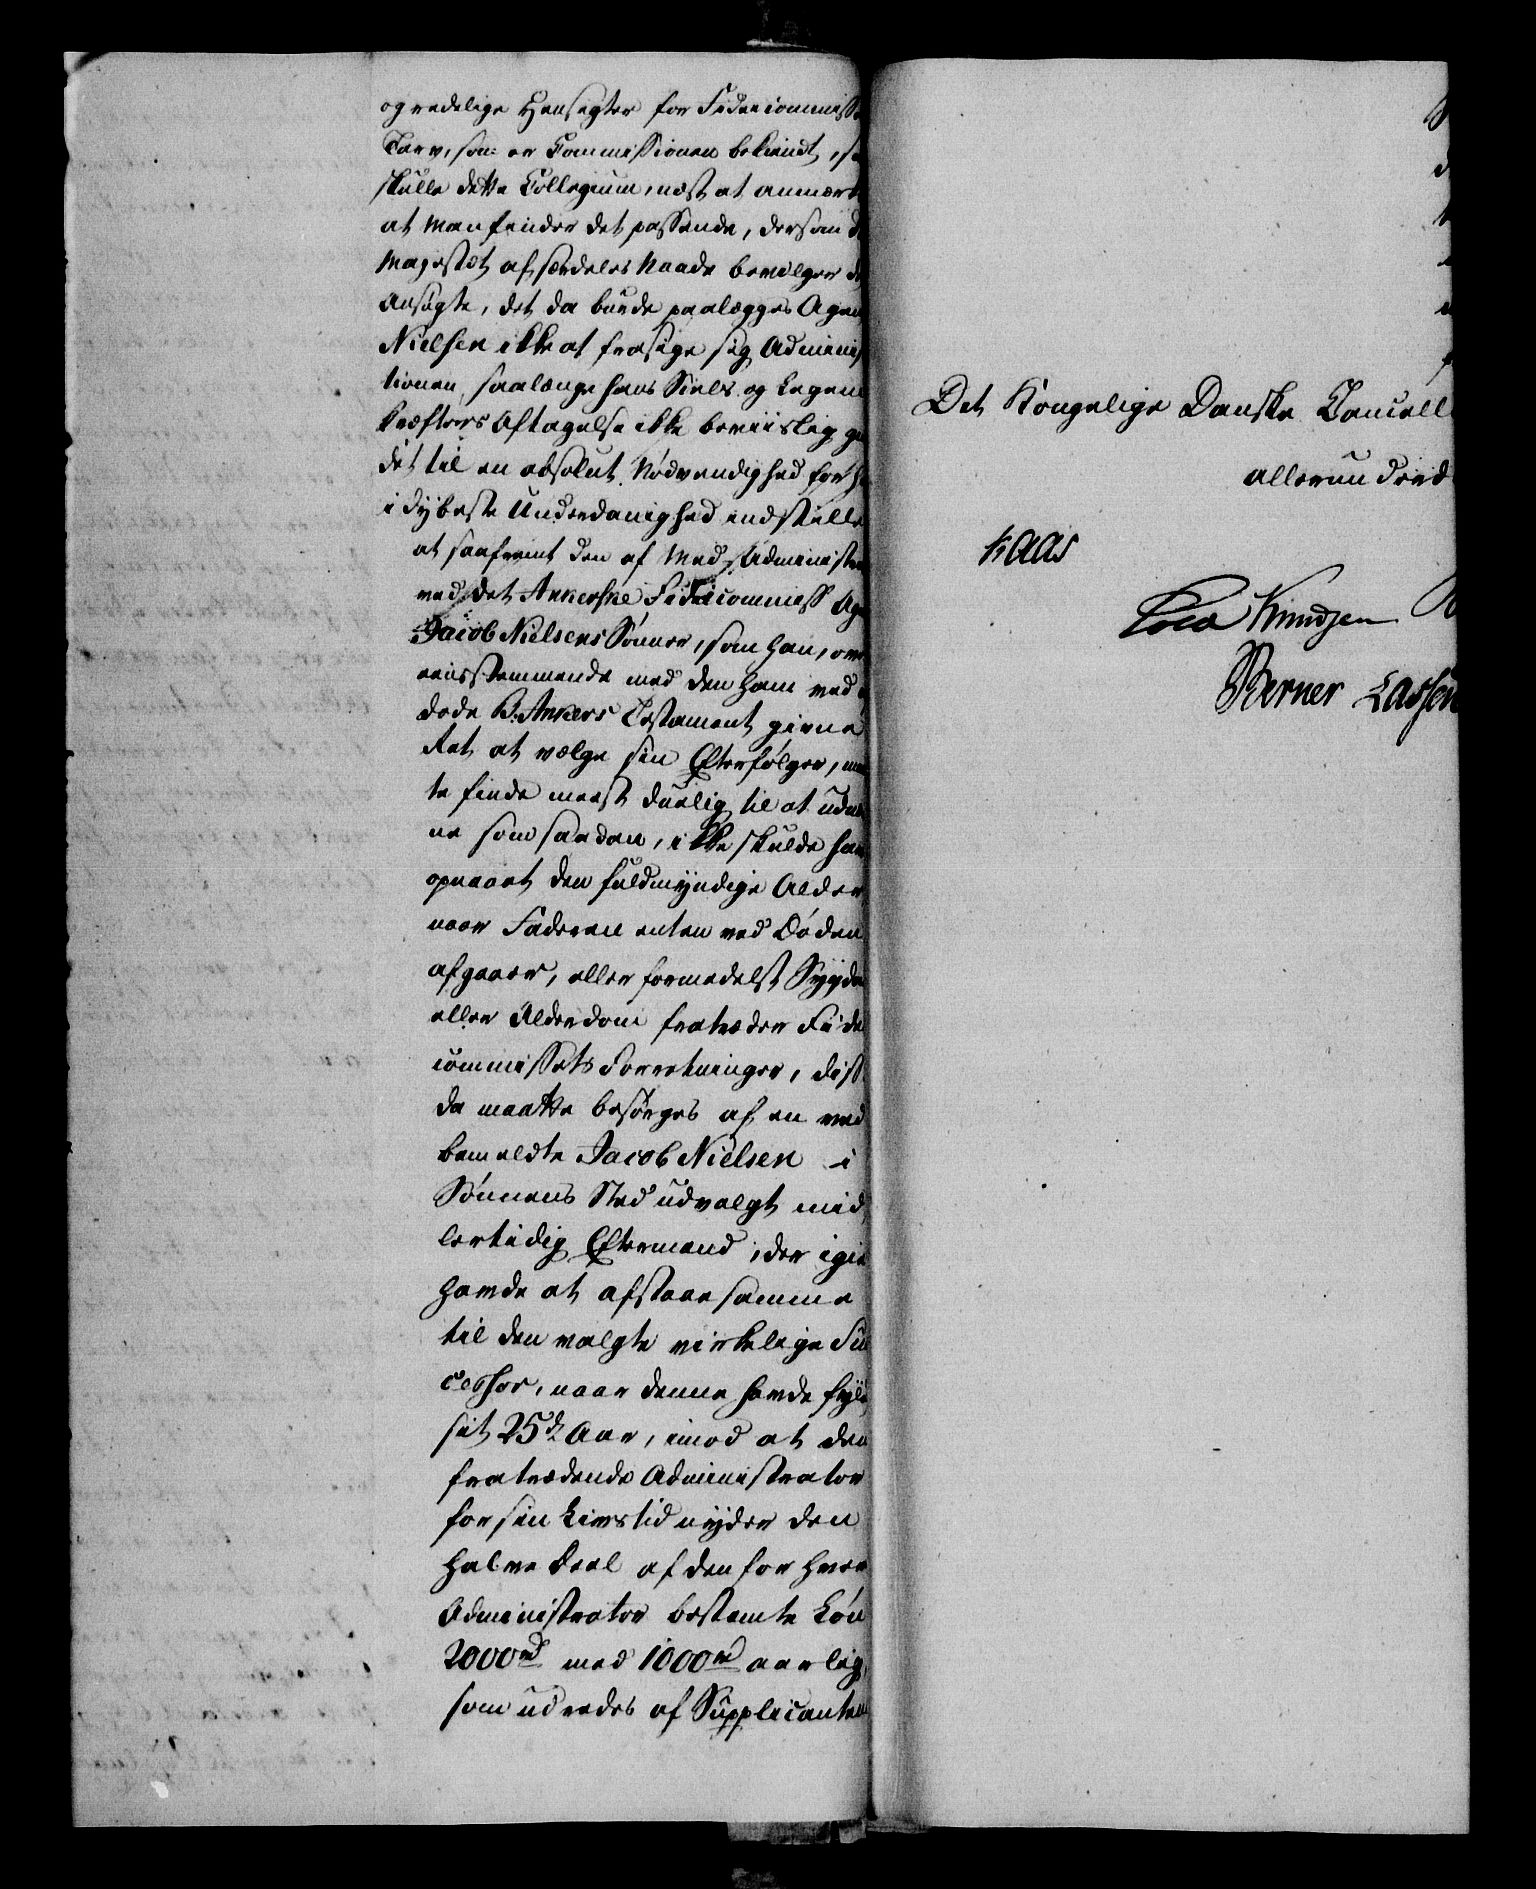 og redelige Hensigter for Fideicommiss
Tarv, som er Commissionen bekiendt, s
skulle dette Collegium, næst at anmærk
at man finder det passende, dersom D
Majestæt af særdeles Naade bevilger d
ansøgte, det da burde paalægges Agen
Nielsen ikke at frasige sig Adminis
tionen, saalænge hans Siels og Legem
Kræfters Aftagelse ikke beviislig gi
det til en absolut Nødvendighed for h
i dybeste Underdanighed indstille
at saafremt den af Med-Administra
ved det Ankerske Fideicommiss Age
Jacob Nielsens Sønner, som han, over
eensstemmende med den ham ved a
døde B. Ankers Testament givne
Ret at vælge sin Efterfølger, maa
te finde meest duelig til at udnæv
ne som saadan, ikke skulde have
opnaaet den fuldmyndige Alder
naar Faderen enten ved Døden
afgaaer, eller formedelst Sygdom
eller Alderdom fratræder Fidei
commissets Forretninger, disse
da maatte besørges af en ved
bemeldte Jacob Nielsen i
Sønnens Sted udvalgt mid
lertidig Eftermand, der igie
havde at afstaae samme
til den valgte virkelige Suc
cessor, naar denne havde fyld
sit 25de Aar, imod at den
fratrædende Administrator
for sin Livstid nyder den
halve Deel af den for hver
Administrator bestemte Løn
2000 rd med 1000 rd aarlig,
som udredes af Supplicanten
Det Kongelige Danske Cancell
allerunderd
Kaas
Cold Knudsen
Berner Lassen